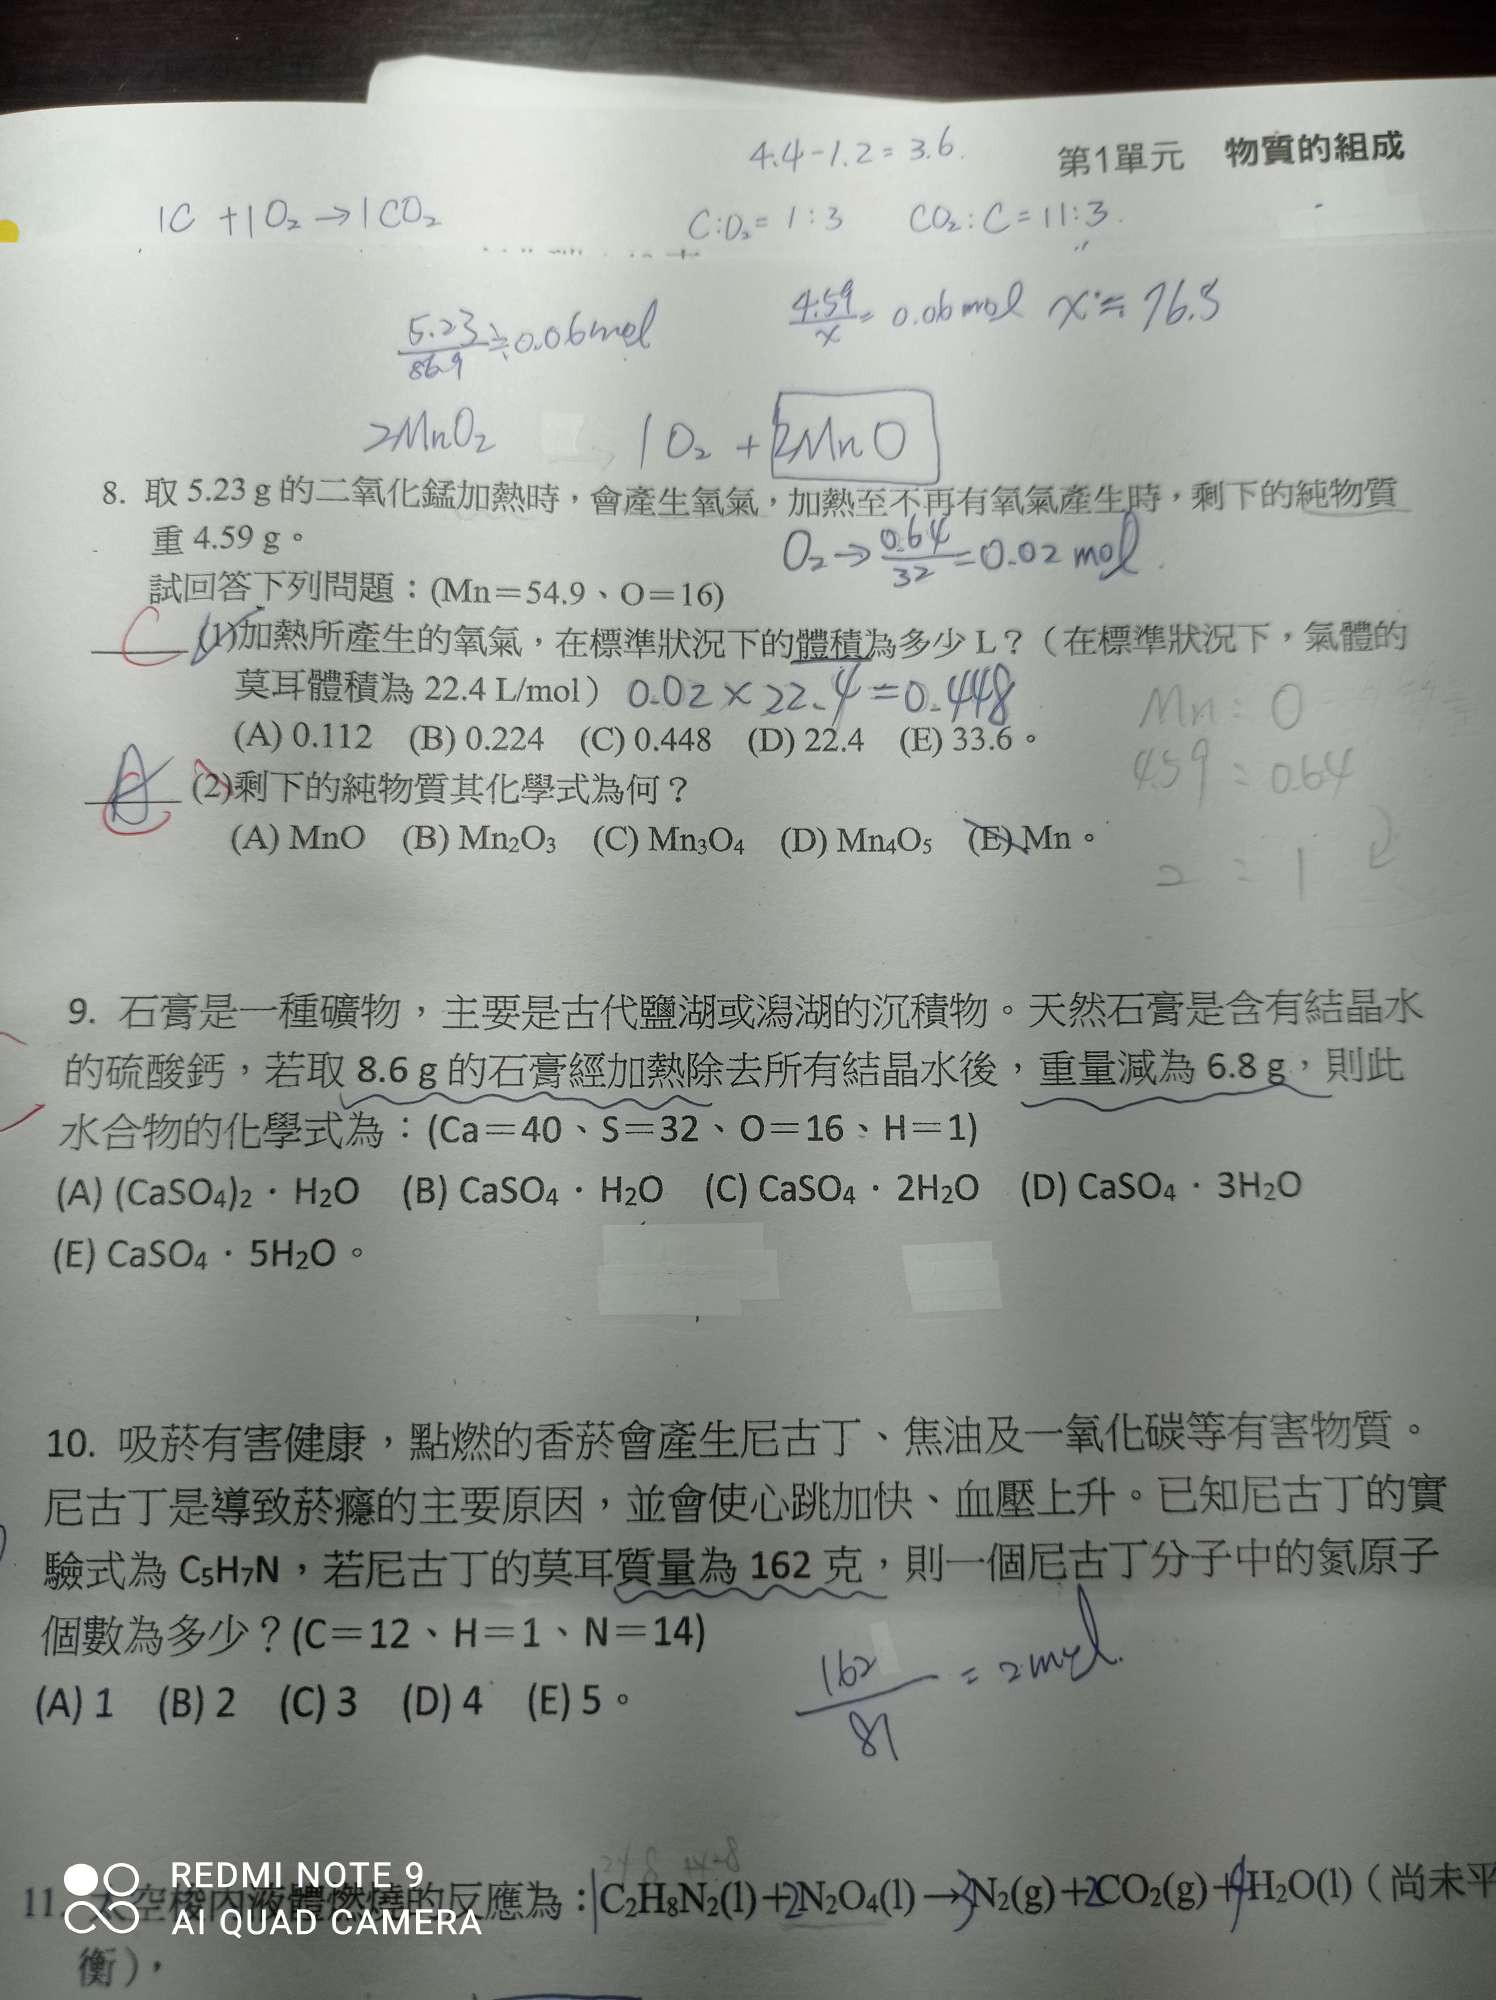 4.4-1.2=3.6.
第1單元 物質的組成
1C+1O₂→1CO₂ C:O₂=1:3 CO₂:C=11:3.
5.23/86.9≒0.06mol 4.59/x=0.06mol x≒76.5
2MnO₂ 1O₂+2MnO
8. 取 5.23 g 的二氧化錳加熱時，會產生氧氣，加熱至不再有氧氣產生時，剩下的純物質
重 4.59 g。
O₂→0.64/32=0.02mol.
試回答下列問題：(Mn＝54.9、O＝16)
C (1)加熱所產生的氧氣，在標準狀況下的體積為多少 L？（在標準狀況下，氣體的
莫耳體積為 22.4 L/mol） 0.02×22.4=0.448
Mn:O
(A) 0.112 (B) 0.224 (C) 0.448 (D) 22.4 (E) 33.6。
4.59:0.64
(2)剩下的純物質其化學式為何？
(A) MnO (B) Mn₂O₃ (C) Mn₃O₄ (D) Mn₄O₅ (E) Mn。
2:1
9. 石膏是一種礦物，主要是古代鹽湖或潟湖的沉積物。天然石膏是含有結晶水
的硫酸鈣，若取 8.6 g 的石膏經加熱除去所有結晶水後，重量減為 6.8 g，則此
水合物的化學式為：(Ca＝40、S＝32、O＝16、H＝1)
(A) (CaSO₄)₂．H₂O (B) CaSO₄．H₂O (C) CaSO₄．2H₂O (D) CaSO₄．3H₂O
(E) CaSO₄．5H₂O。
10. 吸菸有害健康，點燃的香菸會產生尼古丁、焦油及一氧化碳等有害物質。
尼古丁是導致菸癮的主要原因，並會使心跳加快、血壓上升。已知尼古丁的實
驗式為 C₅H₇N，若尼古丁的莫耳質量為 162 克，則一個尼古丁分子中的氮原子
個數為多少？(C＝12、H＝1、N＝14)
162/81=2mol.
(A) 1 (B) 2 (C) 3 (D) 4 (E) 5。
11. 太空梭內液體燃燒的反應為：1C₂H₈N₂(l)+2N₂O₄(l)→3N₂(g)+2CO₂(g)+4H₂O(l)（尚未平
衡），
REDMI NOTE 9
AI QUAD CAMERA